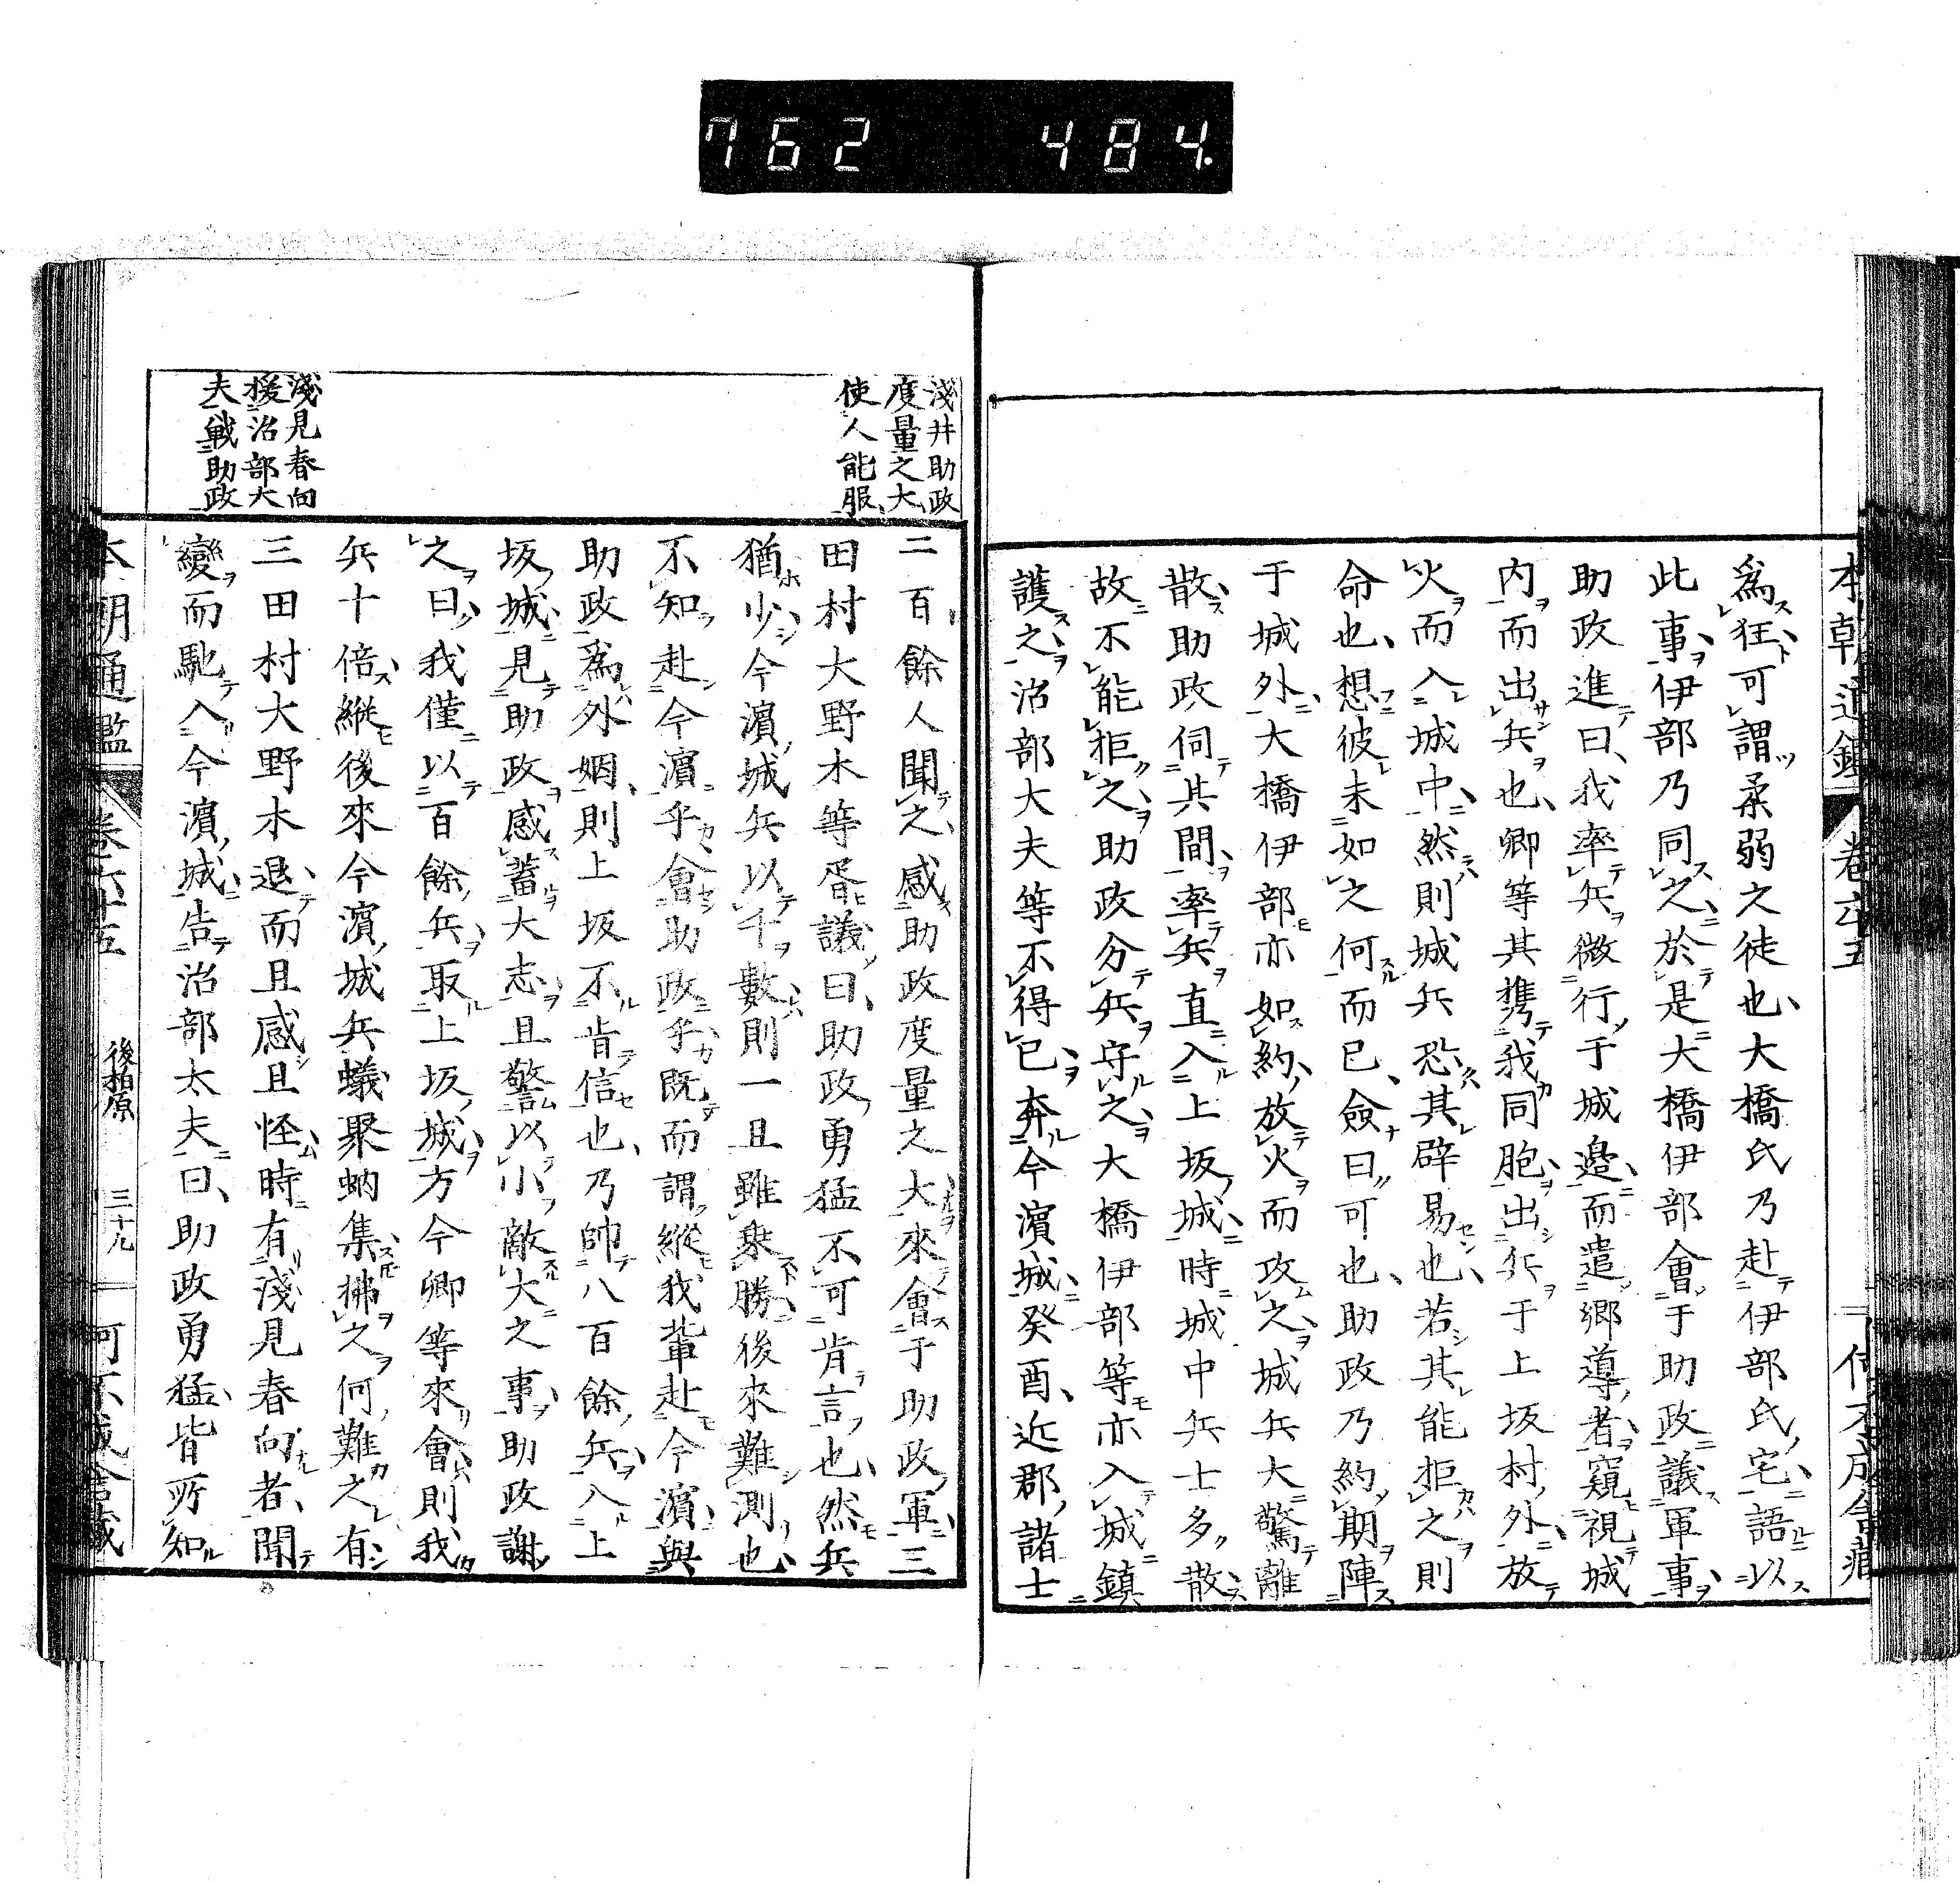 762 484.
本朝通鑑 卷六十五
爲狂可謂柔弱之徒也、大橋氏乃赴伊部氏宅、語以
此事、伊部乃同之、於是大橋伊部會于助政議軍事、
助政進曰、我率兵微行于城邉、而遣郷導者、窺視城
内而出兵也、卿等其携我同胞、出兵于上坂村外、放
火而入城中、然則城兵恐其辟易也、若其能拒之則
命也、想彼未如之何而已、僉曰可也、助政乃約期陣
于城外、大橋伊部亦如約、放火而攻之、城兵大驚離
散、助政伺其間、率兵直入上坂城、時城中兵士多散、
故不能拒之、助政分兵守之、大橋伊部等亦入城鎮
護之、治部大夫等不得已奔今濵城、癸酉、近郡諸士
淺井助政
度量之大
使人能服
二百餘人聞之、感助政度量之大、來會于助政軍、三
田村大野木等胥議曰、助政勇猛不可肯言也、然兵
猶少、今濵城兵以千數、則一旦雖乗勝、後來難測也、
不知赴今濵乎、會助政乎、既而謂、縱我輩赴今濵、與
助政爲外姻、則上坂不肯信也、乃帥八百餘兵入上
坂城、見助政、感蓄大志、且警以小敵大之事、助政謝
之曰、我僅以百餘兵取上坂城、方今卿等來會、則我
兵十倍、縱後來今濵城兵蟻聚蚋集、拂之何難之有、
三田村大野木退而且感且怪、時有淺見春向者、聞
變而馳入今濵城、告治部太夫曰、助政勇猛、皆所知
淺見春向
援治部大
夫戰助政
本朝通鑑 卷六十五 後柏原 三十九